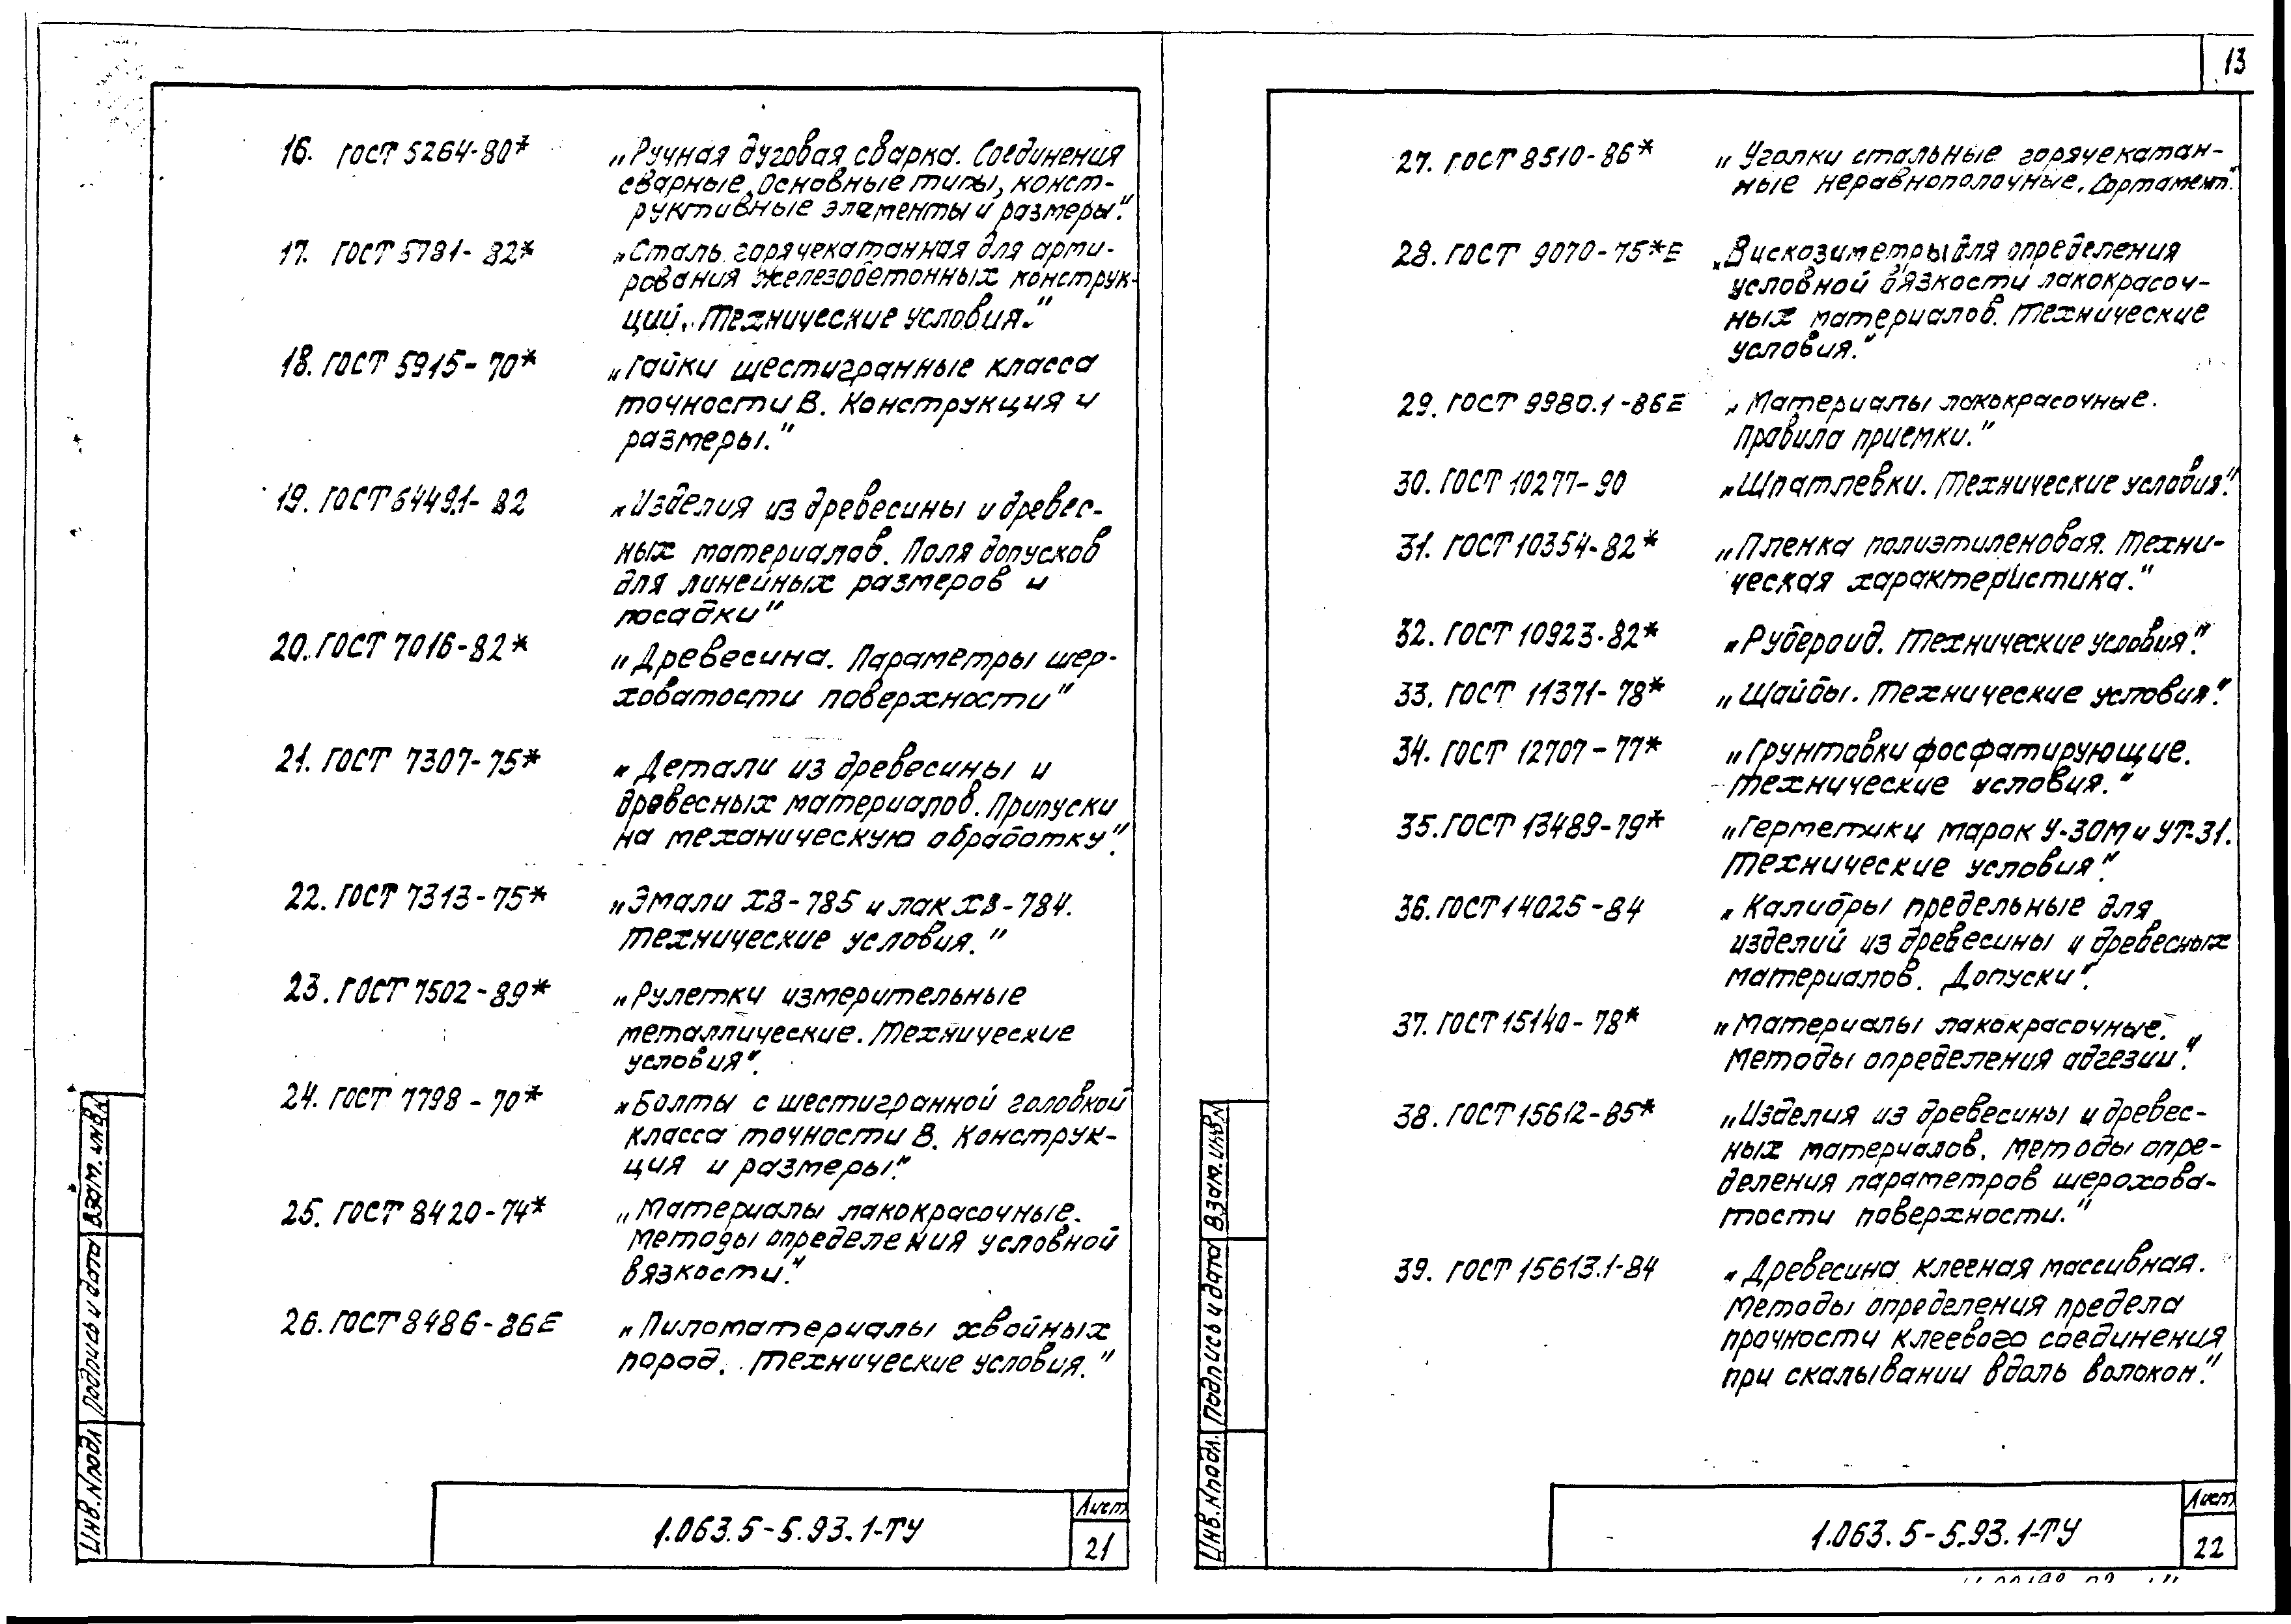 16. ГОСТ 5264-80* „Ручная дуговая сварка. Соединения
сварные. Основные типы, конст-
руктивные элементы и размеры."
17. ГОСТ 5781-82* „Сталь горячекатанная для арми-
рования железобетонных конструк-
ций. Технические условия."
18. ГОСТ 5915-70* „Гайки шестигранные класса
точности В. Конструкция и
размеры."
19. ГОСТ 6449.1-82 „Изделия из древесины и древес-
ных материалов. Поля допусков
для линейных размеров и
посадки"
20. ГОСТ 7016-82* „Древесина. Параметры шер-
ховатости поверхности"
21. ГОСТ 7307-75* „Детали из древесины и
древесных материалов. Припуски
на механическую обработку".
22. ГОСТ 7313-75* „Эмали ХВ-785 и лак ХВ-784.
Технические условия."
23. ГОСТ 7502-89* „Рулетки измерительные
металлические. Технические
условия".
24. ГОСТ 7798-70* „Болты с шестигранной головкой
класса точности В. Конструк-
ция и размеры".
25. ГОСТ 8420-74* „Материалы лакокрасочные.
Методы определения условной
вязкости".
26. ГОСТ 8486-86Е „Пиломатериалы хвойных
пород. Технические условия."
Инв.N подл Подпись и дата Взам. инв.N
1.063.5-5.93.1-ТУ
Лист
21
13
27. ГОСТ 8510-86* „Уголки стальные горячекатан-
ные неравнополочные. Сортамент".
28. ГОСТ 9070-75*Е „Вискозиметры для определения
условной вязкости лакокрасоч-
ных материалов. Технические
условия."
29. ГОСТ 9980.1-86Е „Материалы лакокрасочные.
Правила приемки."
30. ГОСТ 10277-90 „Шпатлевки. Технические условия".
31. ГОСТ 10354-82* „Пленка полиэтиленовая. Техни-
ческая характеристика."
32. ГОСТ 10923-82* „Рубероид. Технические условия".
33. ГОСТ 11371-78* „Шайбы. Технические условия".
34. ГОСТ 12707-77* „Грунтовки фосфатирующие.
Технические условия."
35. ГОСТ 13489-79* „Герметики марок У-30М и УТ-31.
Технические условия".
36. ГОСТ 14025-84 „Калибры предельные для
изделий из древесины и древесных
материалов. Допуски".
37. ГОСТ 15140-78* „Материалы лакокрасочные.
Методы определения адгезии".
38. ГОСТ 15612-85* „Изделия из древесины и древес-
ных материалов. Методы опре-
деления параметров шерохова-
тости поверхности."
39. ГОСТ 15613.1-84 „Древесина клееная массивная.
Методы определения предела
прочности клеевого соединения
при скалывании вдоль волокон."
Инв.N подл. Подпись и дата Взам. инв.N
1.063.5-5.93.1-ТУ
Лист
22